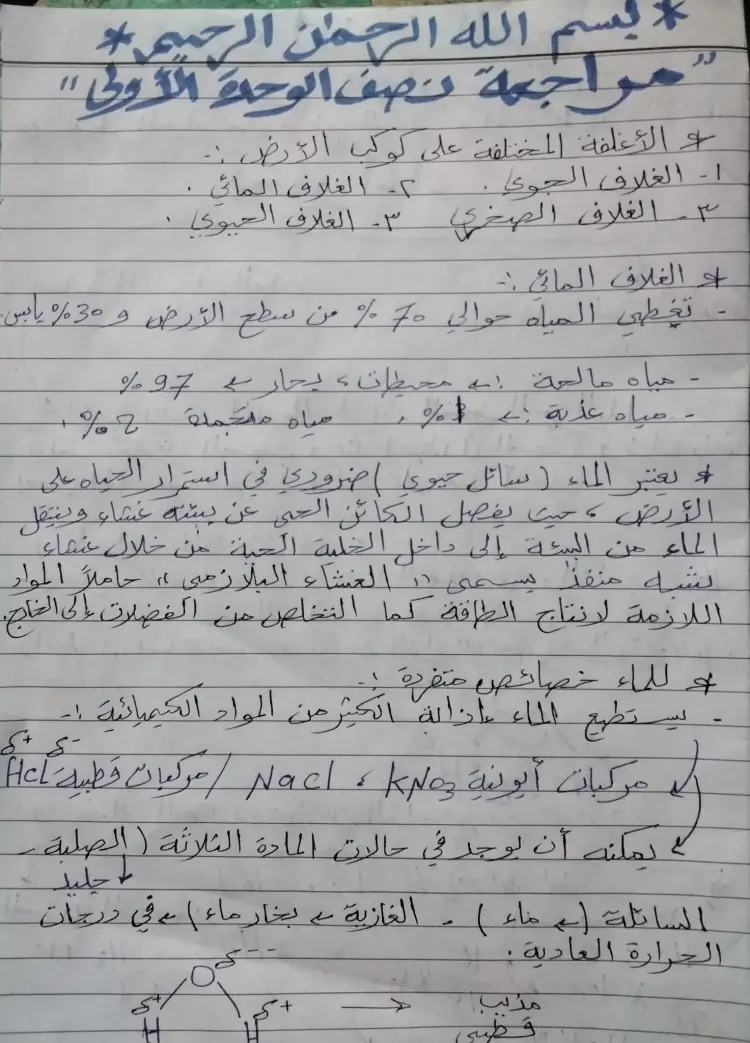 * بسم الله الرحمن الرحيم *
"مراجعة نصف الوحدة الأولى"
* الأغلفة المختلفة على كوكب الأرض :-
١- الغلاف الجوي . ٢- الغلاف المائي .
٣- الغلاف الصخري ٣- الغلاف الحيوي .
* الغلاف المائي :-
- تغطي المياه حوالي 70 % من سطح الأرض و 30% يابس.
- مياه مالحة :← محيطات ، بحار ← 97 %
- مياه عذبة :← 1% ، مياه متجمدة 2 % .
* يعتبر الماء ( سائل حيوي ) ضروري في استمرار الحياه على
الأرض ، حيث يفصل الكائن الحي عن بيئته غشاء وينتقل
الماء من البيئة إلى داخل الخلية الحية من خلال غشاء
شبه منفذ يسمى " الغشاء البلازمى " حاملاً المواد
اللازمة لانتاج الطاقة كما التخلص من الفضلات إلى الخارج.
* للماء خصائص متفردة :-
- يستطيع الماء إذابة الكثير من المواد الكيميائية :-
مركبات أيونية NaCl ، KNO3 / مركبات قطبية HCl δ+ δ-
يمكنه أن يوجد في حالات المادة الثلاثة ( الصلبة -
جليد
السائلة (← ماء ) - الغازية ← بخار ماء ) ← في درجات
الحرارة العادية .
O δ--
δ+ δ+ → مذيب
H H قطبى